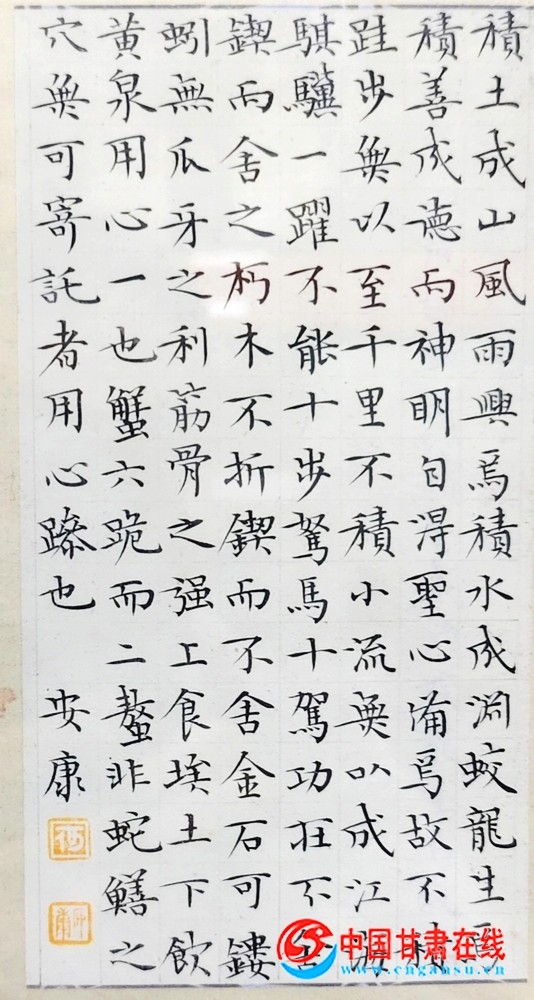 積土成山風雨興焉積水成渊蛟龍生焉
積善成德而神明自得聖心備焉故不積
跬步無以至千里不積小流無以成江海
騏驥一躍不能十步駑馬十駕功在不舍
鍥而舍之朽木不折鍥而不舍金石可鏤
蚓無爪牙之利筋骨之强上食埃土下飲
黄泉用心一也蟹六跪而二螯非蛇鱔之
穴無可寄託者用心躁也 安康
中国甘肃在线
www.cngansu.cn